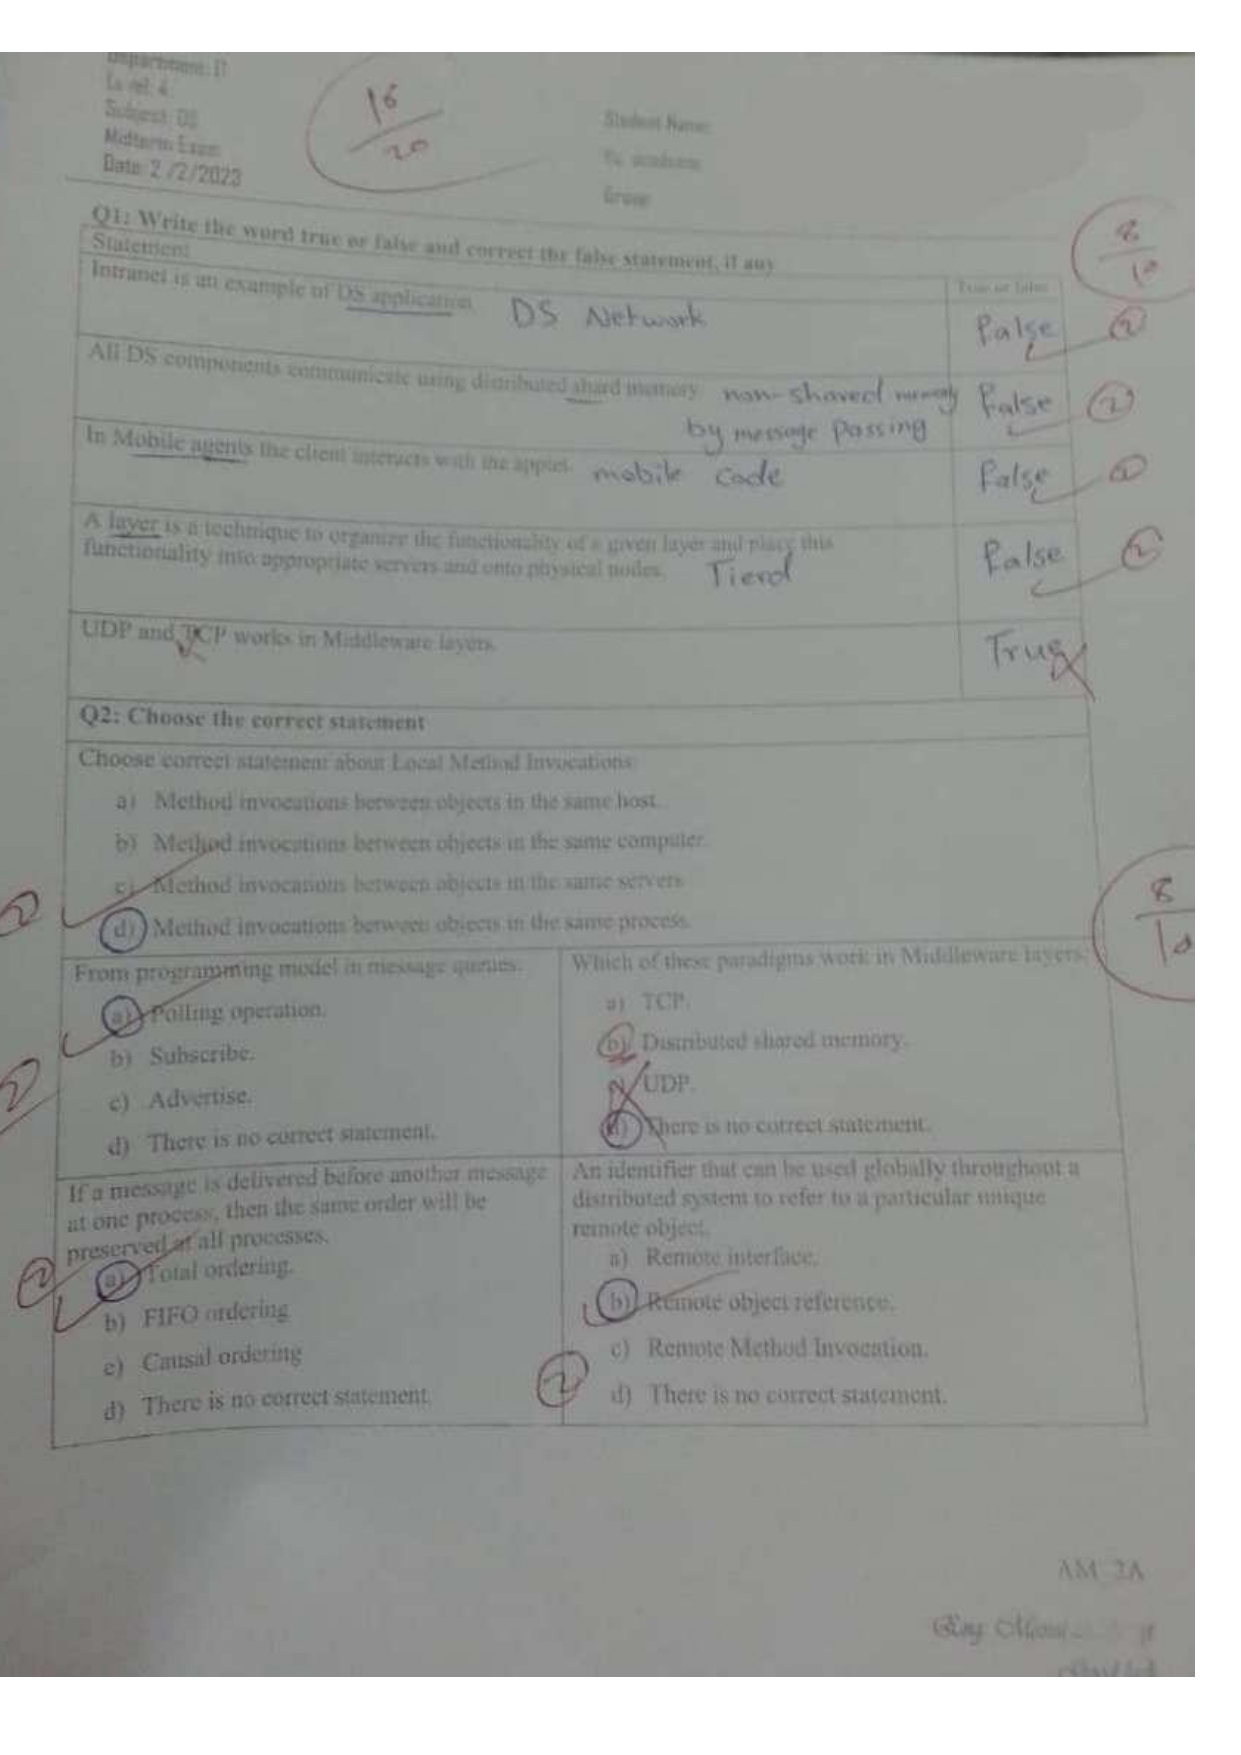 Department: IT
Level: 4
Subject: DS
Midterm Exam
Date: 2 /2/2023
16
20
Student Name:
Group:
Q1: Write the word true or false and correct the false statement, if any
8
10
Statement
True or false
Intranet is an example of DS application. DS Network
False
2
All DS components communicate using distributed shard memory. non-shared memory
by message Passing
False
2
In Mobile agents the client interacts with the applet. mobile Code
False
2
A layer is a technique to organize the functionality of a given layer and place this
functionality into appropriate servers and onto physical nodes. Tierd
False
2
UDP and TCP works in Middleware layers.
True
Q2: Choose the correct statement
Choose correct statement about Local Method Invocations:
a) Method invocations between objects in the same host.
b) Method invocations between objects in the same computer.
c) Method invocations between objects in the same servers
d) Method invocations between objects in the same process.
2
8
10
From programming model in message queues:
a) Polling operation.
b) Subscribe.
c) Advertise.
d) There is no correct statement.
2
Which of these paradigms work in Middleware layers:
a) TCP.
b) Distributed shared memory.
c) UDP.
d) There is no correct statement.
If a message is delivered before another message
at one process, then the same order will be
preserved at all processes.
a) Total ordering.
b) FIFO ordering
c) Causal ordering
d) There is no correct statement.
2
An identifier that can be used globally throughout a
distributed system to refer to a particular unique
remote object.
a) Remote interface.
b) Remote object reference.
c) Remote Method Invocation.
d) There is no correct statement.
2
AM_2A